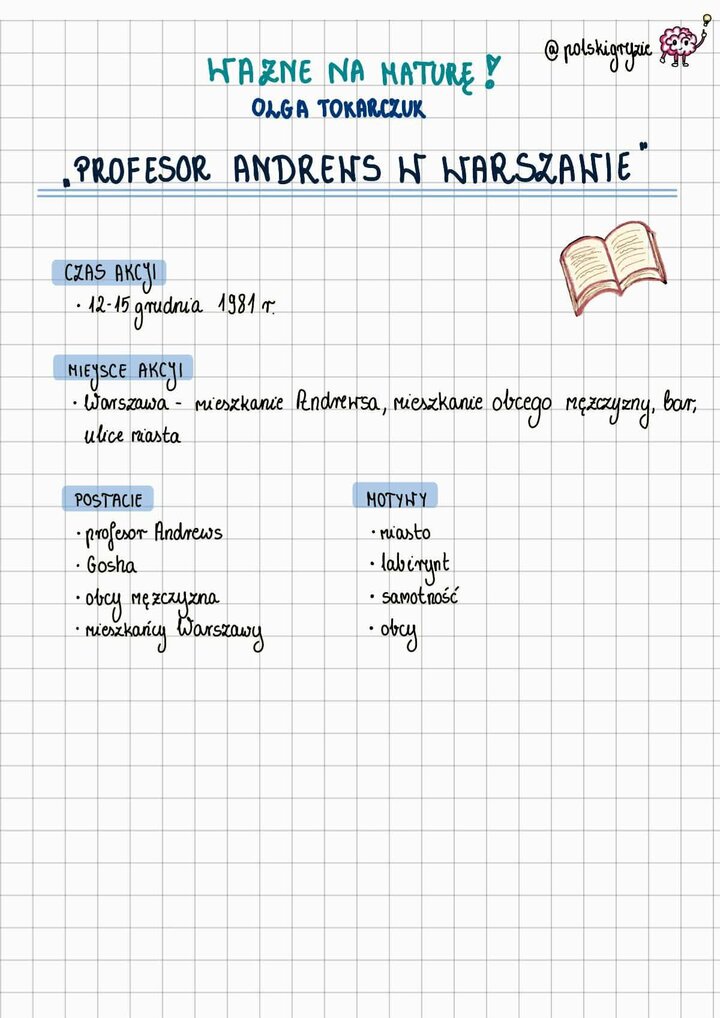 @polskigryzie
WAŻNE NA MATURĘ!
OLGA TOKARCZUK
„PROFESOR ANDREWS W WARSZAWIE"
CZAS AKCJI
· 12-15 grudnia 1981 r.
MIEJSCE AKCJI
· Warszawa - mieszkanie Andrewsa, mieszkanie obcego mężczyzny, bar,
ulice miasta
POSTACIE
· profesor Andrews
· Gosha
· obcy mężczyzna
· mieszkańcy Warszawy
MOTYWY
· miasto
· labirynt
· samotność
· obcy